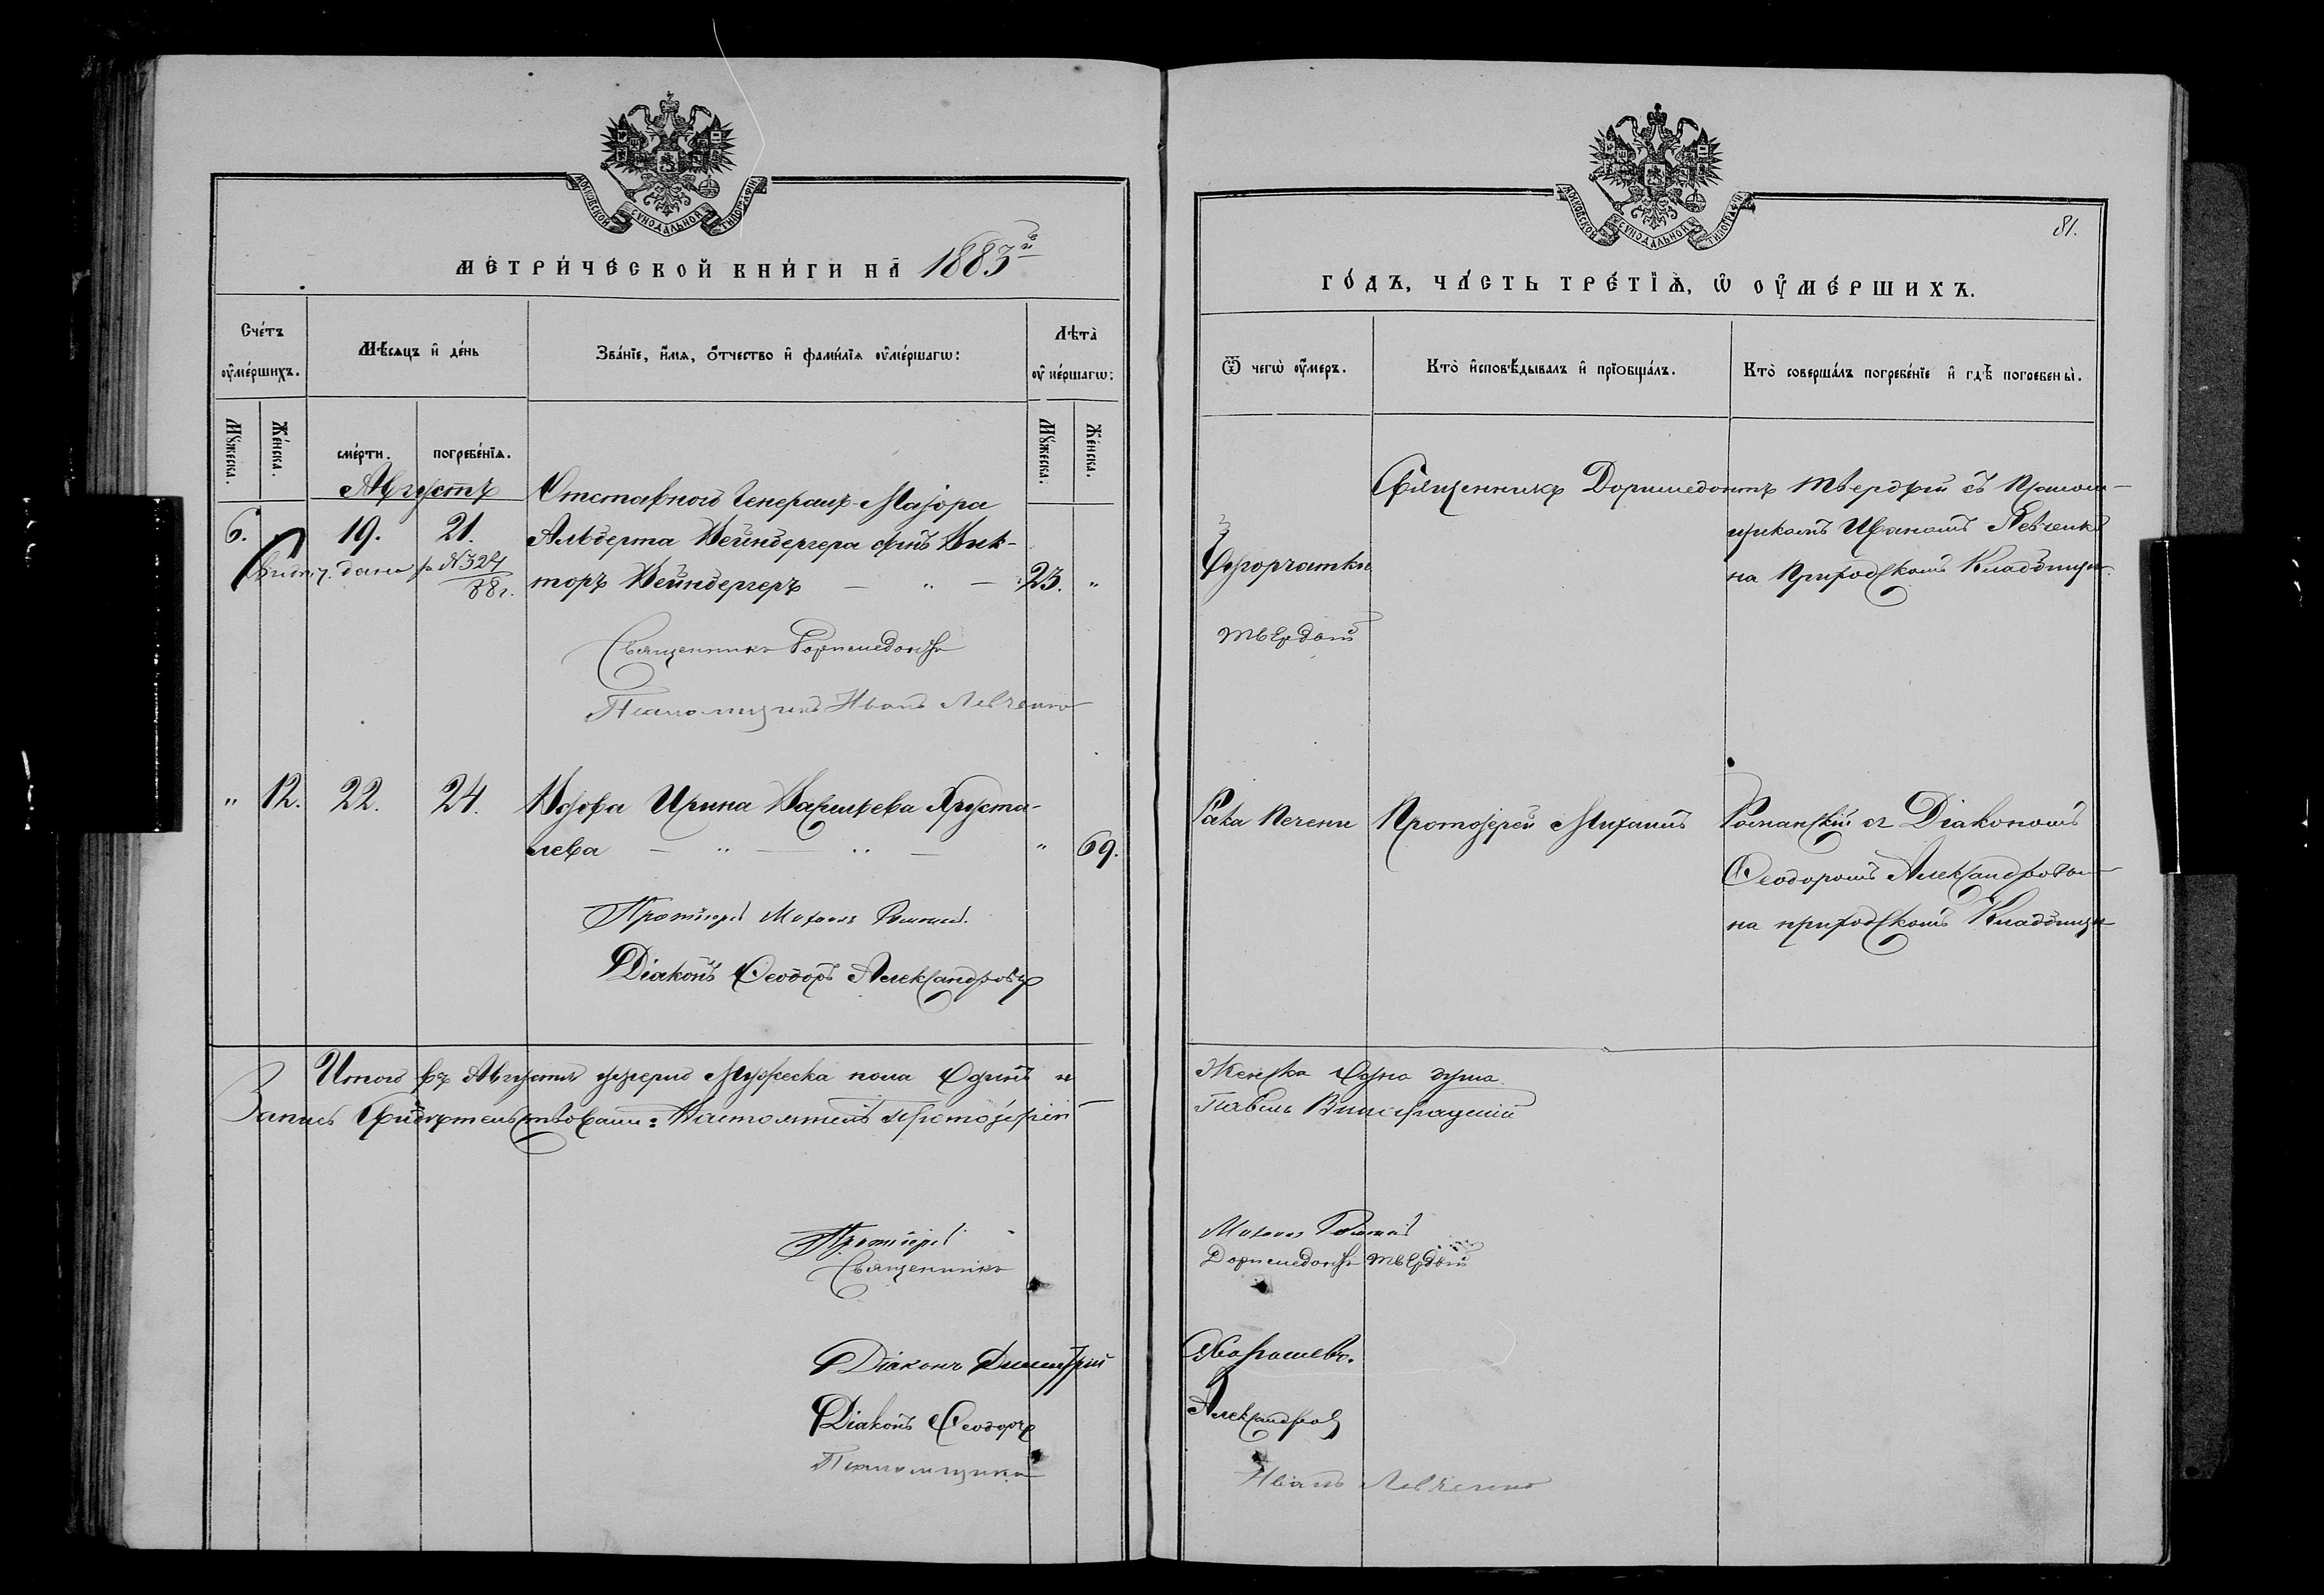 МОСКОВСКОЙ СѴНОДАЛЬНОЙ ТИПОГРАФІИ
МЕТРИ́ЧЕСКОЙ КНИ́ГИ НА̀ 1883й
Сче́тъ ᲂу҆ме́ршихъ.
Мѣ́сяцъ и҆ де́нь
Зва́нїе, и҆́мя, ѻ҆́тчество и҆ фами́лїя ᲂу҆ме́ршагѡ:
Лѣта̀ ᲂу҆ме́ршагѡ:
Мꙋ́жеска.
Же́нска.
сме́рти.
погребе́нїѧ.
Мꙋ́жеска.
Же́нска.
Августъ
6.
19.
21.
Отставного Генералъ-Маіора
Альберта Вейнбергера сынъ Вик-
торъ Вейнбергеръ — " —
23.
"
дано за №324
88г.
Священникъ Дормедонтъ
Псаломщикъ Иванъ Левченко
"
12.
22.
24.
Вдова Ирина Васильева Хруста-
лева — " — " —
"
69.
Протоіерей Михаилъ
Діаконъ Ѳеодоръ Александровъ
Итого въ Августѣ умерло Мужеска пола Одинъ и
Запись Свидѣтельствовали: Настоятель Протоіерей
Протоіерей
Священникъ
Діаконъ Димитрій
Діаконъ Ѳеодоръ
Псаломщикъ
МОСКОВСКОЙ СѴНОДАЛЬНОЙ ТИПОГРАФІИ
81.
ГО́ДЪ, ЧА́СТЬ ТРЕ́ТЇѦ, Ѡ҆ ОУ҆МЕ́РШИХЪ.
Ѿ чегѡ̀ ᲂу҆́меръ.
Кто̀ и҆сповѣ́дывалъ и҆ прїѻбща́лъ.
Кто̀ соверша́лъ погребе́нїе и҆ гдѣ̀ погребены̀.
Чахотки
Священникъ Дормедонтъ Твердый съ Псалом-
щикомъ Иваномъ Левченко
на Приходскомъ Кладбищѣ.
Твердый
Рака Печени
Протоіерей Михаилъ
съ Діакономъ
Ѳеодоромъ Александровымъ
на приходскомъ Кладбищѣ
Женска Одна душа.
Павелъ
Михаилъ
Дормедонтъ Твердый
Александровъ
Иванъ Левченко